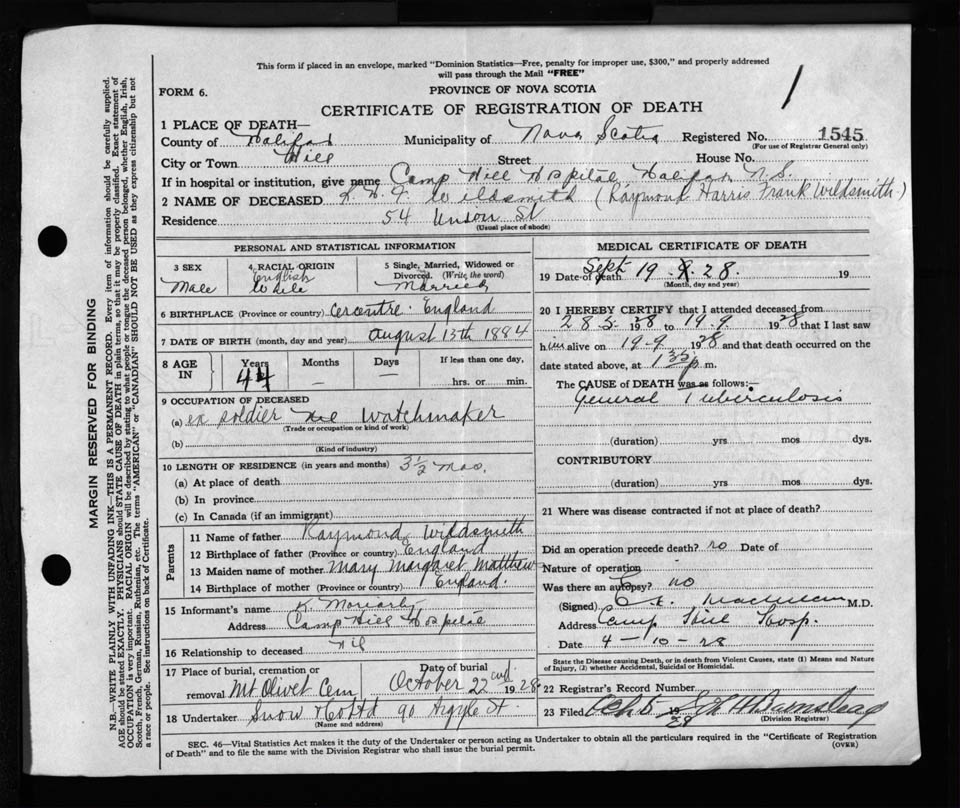 This form if placed in an envelope, marked "Dominion Statistics—Free, penalty for improper use, $300," and properly addressed
will pass through the Mail "FREE"
FORM 6.
PROVINCE OF NOVA SCOTIA
1
CERTIFICATE OF REGISTRATION OF DEATH
1 PLACE OF DEATH—
County of Halifax Municipality of Nova Scotia Registered No. 1545
(For use of Registrar General only)
City or Town Street House No.
If in hospital or institution, give name Camp Hill Hospital Halifax N.S.
2 NAME OF DECEASED R. H. F. Wildsmith (Raymond Harris Frank Wildsmith)
Residence 54 Union St
(Usual place of abode)
PERSONAL AND STATISTICAL INFORMATION
3 SEX
Male
4 RACIAL ORIGIN
English
White
5 Single, Married, Widowed or
Divorced. (Write the word)
Married
6 BIRTHPLACE (Province or country) England
7 DATE OF BIRTH (month, day and year) August 13th 1884
8 AGE IN
Years Months Days If less than one day,
44 – hrs. or min.
9 OCCUPATION OF DECEASED
(a) ex soldier Watchmaker
(Trade or occupation or kind of work)
(b)
(Kind of industry)
10 LENGTH OF RESIDENCE (in years and months) 3½ mos.
(a) At place of death
(b) In province
(c) In Canada (if an immigrant)
Parents
11 Name of father Raymond Wildsmith
12 Birthplace of father (Province or country) England
13 Maiden name of mother Mary Margaret Matthew
14 Birthplace of mother (Province or country) England.
15 Informant's name K Moriarty
Address Camp Hill Hospital
16 Relationship to deceased Nil
17 Place of burial, cremation or Date of burial
removal Mt Olivet Cem October 22nd 1928
18 Undertaker Snow & Co Ltd 90 Argyle St.
(Name and address)
MEDICAL CERTIFICATE OF DEATH
19 Date of death Sept 19 . 28. 19
(Month, day and year)
20 I HEREBY CERTIFY that I attended deceased from
28 5 1928 to 19-9 1928 that I last saw
him alive on 19-9 1928 and that death occurred on the
date stated above, at 1 35 p.m.
The CAUSE of DEATH was as follows:—
General Tuberculosis
(duration) yrs mos dys.
CONTRIBUTORY
(duration) yrs mos dys.
21 Where was disease contracted if not at place of death?
Did an operation precede death? no Date of
Nature of operation
Was there an autopsy? no
(Signed) M.D.
Address Camp Hill Hosp.
Date 4-10-28
State the Disease causing Death, or in death from Violent Causes, state (1) Means and Nature
of Injury, (2) whether Accidental, Suicidal or Homicidal.
22 Registrar's Record Number
23 Filed Oct 5 1928
(Division Registrar)
SEC. 46—Vital Statistics Act makes it the duty of the Undertaker or person acting as Undertaker to obtain all the particulars required in the "Certificate of Registration
of Death" and to file the same with the Division Registrar who shall issue the burial permit.
(OVER)
MARGIN RESERVED FOR BINDING
N.B.—WRITE PLAINLY WITH UNFADING INK—THIS IS A PERMANENT RECORD. Every item of information should be carefully supplied.
AGE should be stated EXACTLY. PHYSICIANS should STATE CAUSE OF DEATH in plain terms, so that it may be properly classified. Exact statement of
OCCUPATION is very important. RACIAL ORIGIN will be described by stating to what people or tongue the deceased person belonged, whether English, Irish,
Scotch, French, German, Russian, Ruthenian, etc. The terms "AMERICAN" or "CANADIAN" SHOULD NOT BE USED as they express citizenship but not
a race or people. See instructions on back of Certificate.